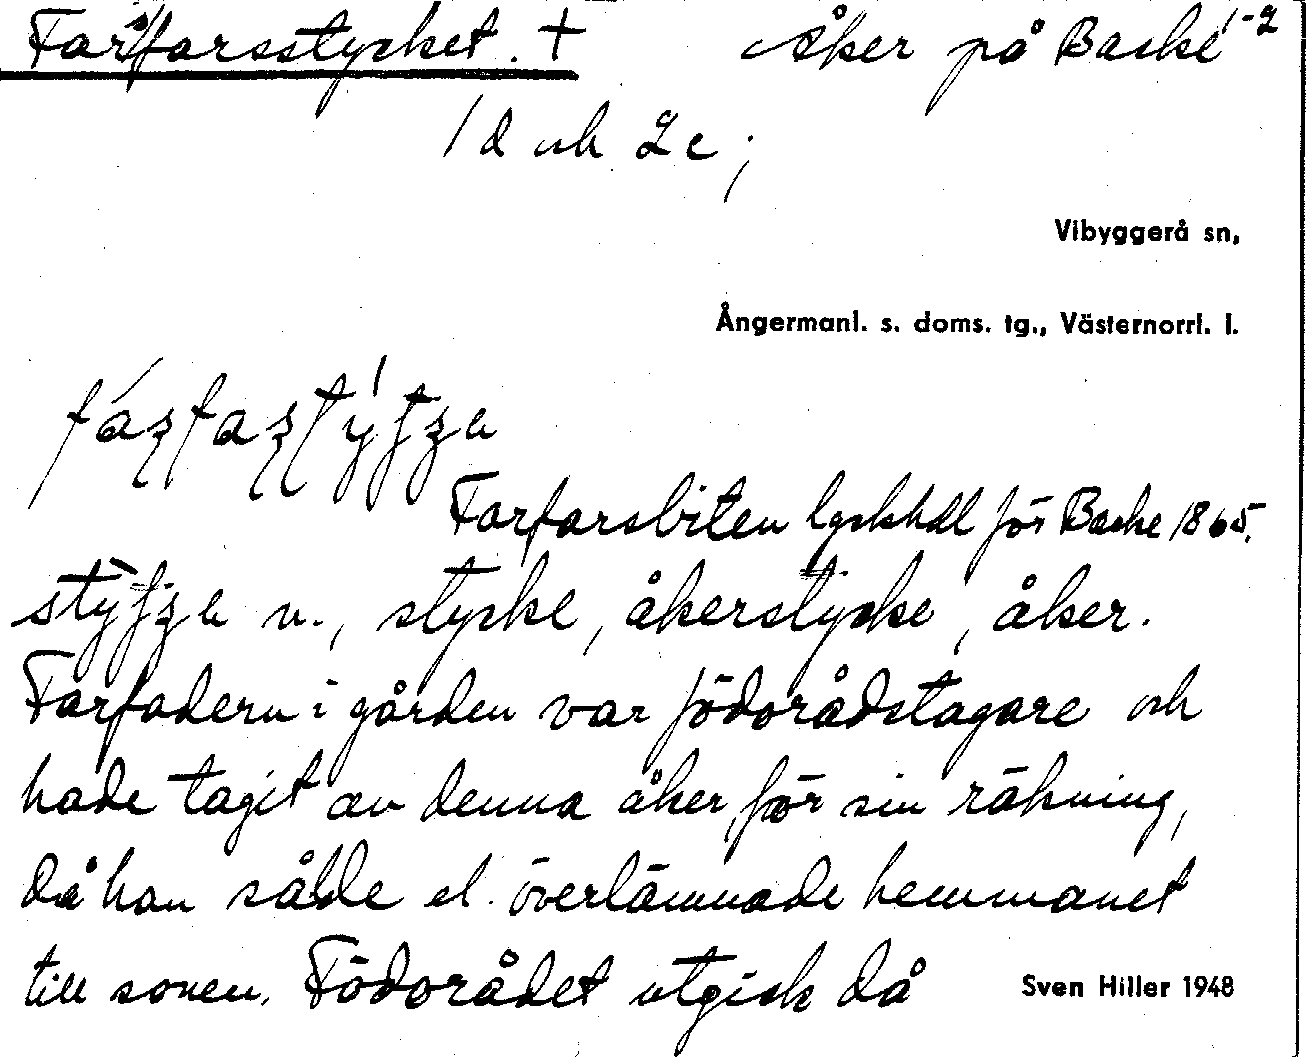 Farfarsstycket. + Åker på Backe 1-2
1d och 2c;
Vibyggerå sn,
Ångermanl. s. doms. tg., Västernorrl. l.
Farfarsbiten lyckhdl för Backe 1865.
n., stycke, åkerstycke, åker.
Farfadern i gården var födorådstagare och
hade tagit av denna åker för sin räkning,
då han sålde el. överlämnade hemmanet
till sonen. Födorådet utgick då
Sven Hiller 1948